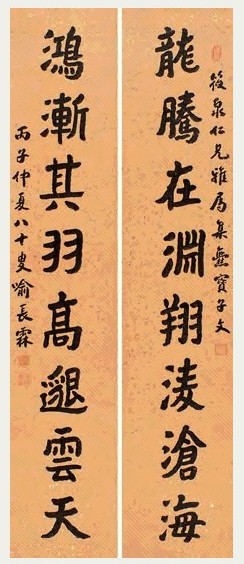 龍騰在淵翔淩滄海
筱泉仁兄雅屬集爨寶子文
鴻漸其羽高遐雲天
丙子仲夏八十叟喻長霖